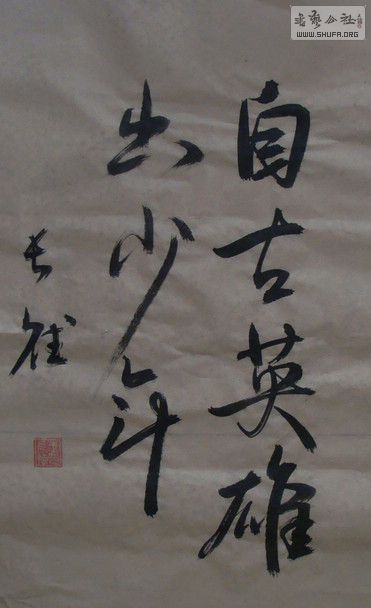 自古英雄
出少年
书艺公社
WWW.SHUFA.ORG